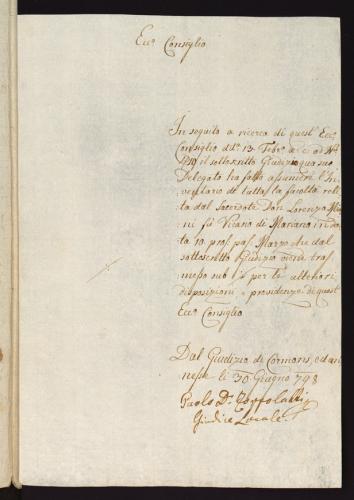 Ecc.º Consiglio
In seguito a ricerca di quest' Ecc.º
Consiglio ddº 13 Febrº a. c. ad Nº
il sottoscritto Giudizio qua suo
Delegato ha fatto assumere l'In
ventario di tutta la facoltà relit
ta dal sacerdote Don Lorenzo
ni fù Vicario di Mariano in da
ta 10. pros. pas. Marzo che dal
sottoscritto Giudizio viene tras
messo sub % per le ulteriori
disposizioni, e providenze di quest'
Ecc.º Consiglio
Dal Giudizio di Cormons, ed an
nesse li 30 Giugno 798
Paolo Dr.
Giudice Locale